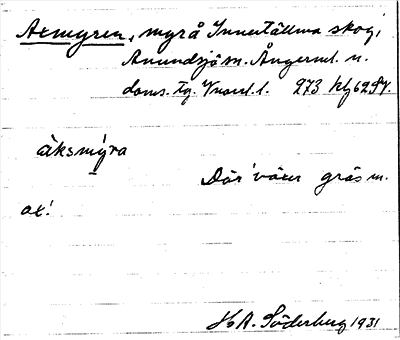 Axmyren, myrå Innertällma skog,
Anundsjö sn. Ångerml. n.
doms. tg. Väst. l. 273 klg 6284.
àksmy̱ra
Där växer gräs m.
ax!
H.A. Söderberg 1931